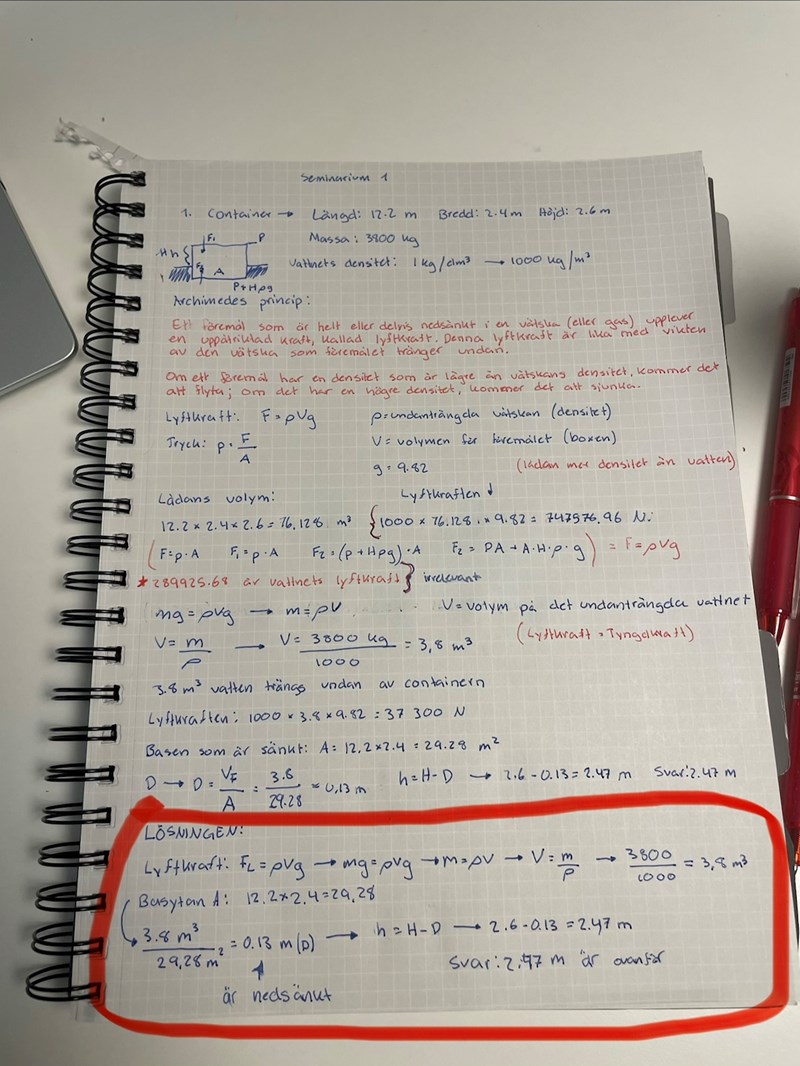 Seminarium 1
1. Container → Längd: 12.2 m Bredd: 2.4 m Höjd: 2.6 m
Massa: 3800 kg
F₁ P
H h
Vattnets densitet: 1 kg/dm³ → 1000 kg/m³
F₂ A
P+Hρg
Archimedes princip:
Ett föremål som är helt eller delvis nedsänkt i en vätska (eller gas) upplever
en uppåtriktad kraft, kallad lyftkraft. Denna lyftkraft är lika med vikten
av den vätska som föremålet tränger undan.
Om ett föremål har en densitet som är lägre än vätskans densitet, kommer det
att flyta; om det har en högre densitet, kommer det att sjunka.
Lyftkraft: F = ρVg ρ = undanträngda vätskan (densitet)
Tryck: p = F/A V = volymen för föremålet (boxen)
g = 9.82 (lådan mer densitet än vatten)
Lådans volym: Lyftkraften ↓
12.2 × 2.4 × 2.6 = 76.128 m³ { 1000 × 76.128 × 9.82 = 747576.96 N.
(F = p · A F₁ = p · A F₂ = (p + Hρg) · A F₂ = PA + A · H · ρ · g) = F = ρVg
* 289925.68 är vattnets lyftkraft } irrelevant
mg = ρVg → m = ρV V = volym på det undanträngda vattnet
V = m/ρ → V = 3800 kg/1000 = 3,8 m³ (Lyftkraft = Tyngdkraft)
3.8 m³ vatten trängs undan av containern
Lyftkraften: 1000 × 3.8 × 9.82 = 37 300 N
Basen som är sänkt: A = 12.2 × 2.4 = 29.28 m²
D → D = V_F/A = 3.8/29.28 = 0,13 m h = H - D → 2.6 - 0.13 = 2.47 m Svar: 2.47 m
LÖSNINGEN:
Lyftkraft: F_L = ρVg → mg = ρVg → m = ρV → V = m/ρ → 3800/1000 = 3,8 m³
Basytan A: 12.2 × 2.4 = 29,28
3.8 m³/29,28 m² = 0.13 m (D) → h = H - D → 2.6 - 0.13 = 2.47 m
Svar: 2.47 m är ovanför
är nedsänkt